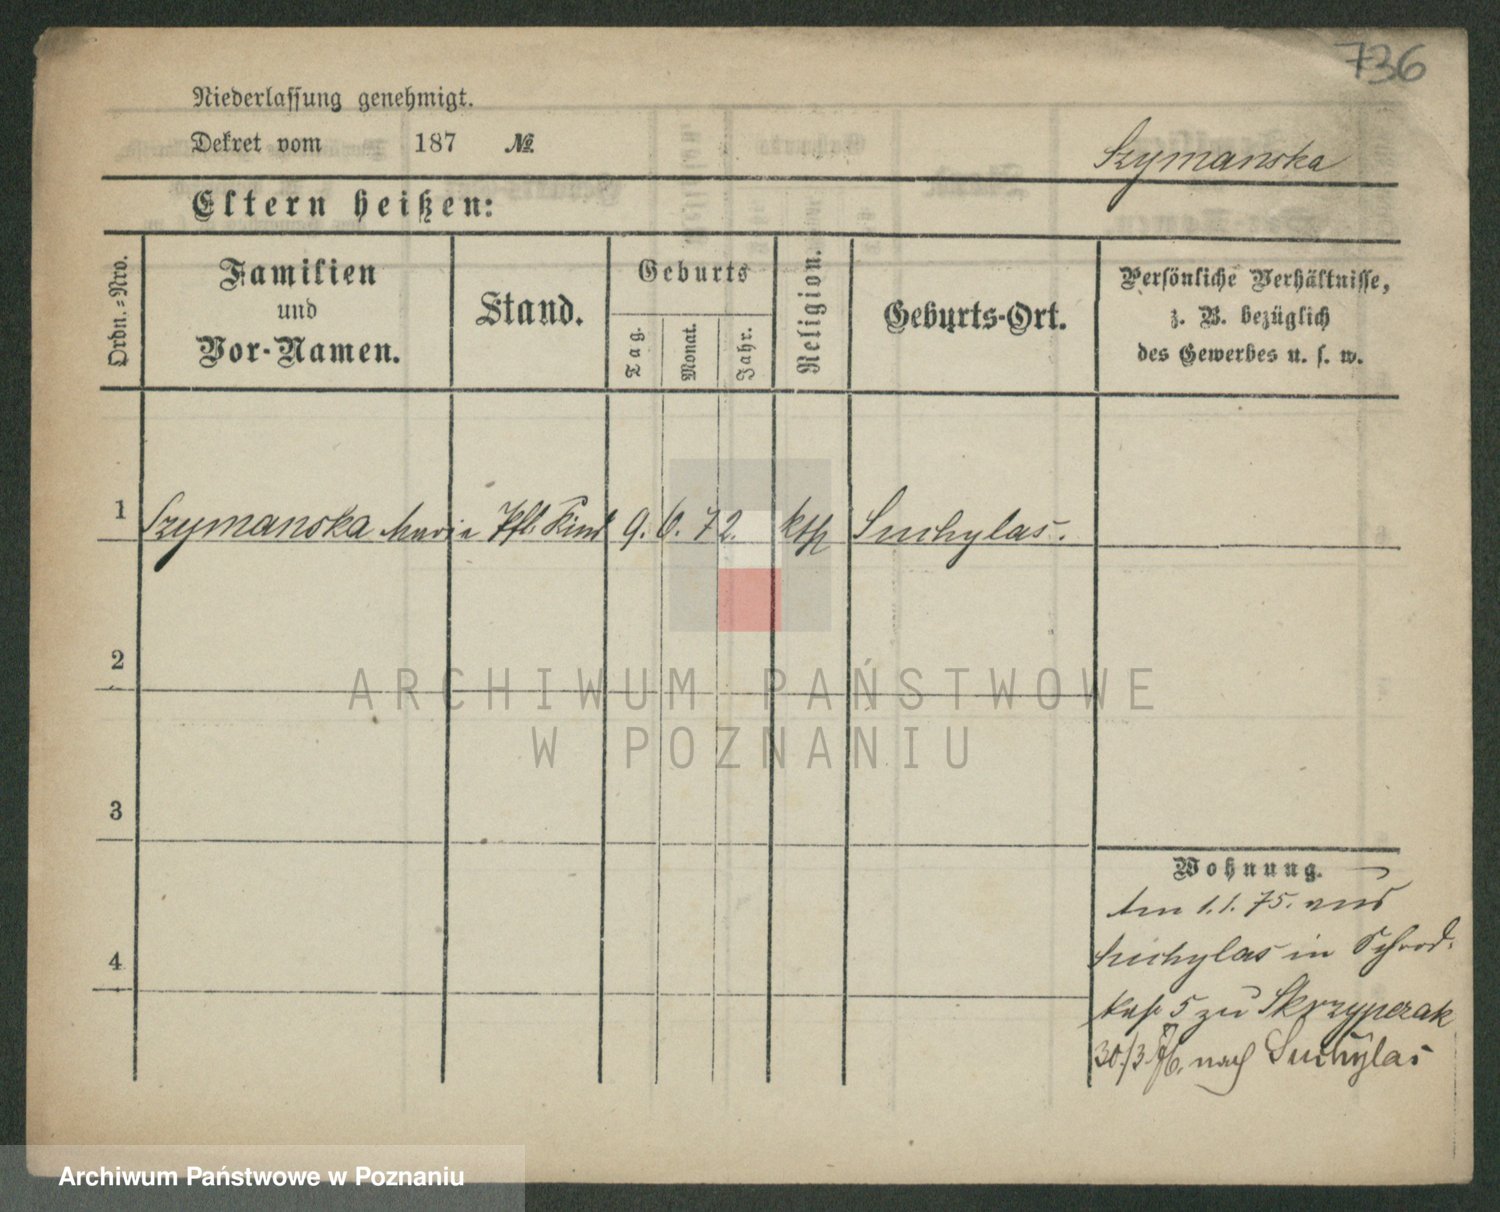 736
Niederlassung genehmigt.
Dekret vom 187 №
Szymanska
Eltern heißen:
Ordn.-Nro.
Familien
und
Vor-Namen.
Stand.
Geburts
Tag.
Monat.
Jahr.
Religion.
Geburts-Ort.
Persönliche Verhältnisse,
z. B. bezüglich
des Gewerbes u. s. w.
1 Szymanska Maria Pfl. Kind 9. 6. 72. kth Suchylas.
2
3
4
Wohnung.
Am 1.1.75. aus
Suchylas in Schrod-
5 zu Skrzypczak
30/3 nach Suchylas
ARCHIWUM PAŃSTWOWE
W POZNANIU
Archiwum Państwowe w Poznaniu